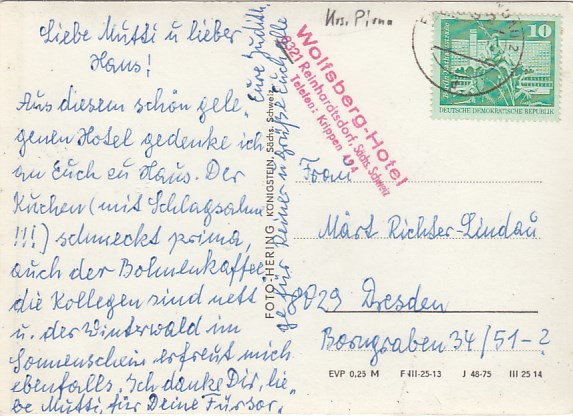 Liebe Mutti u lieber
Hans!
Aus diesem schön gele=
genen Hotel gedenke ich
an Euch zu Haus. Der
Kuchen (mit Schlagsahne
!!!) schmeckt prima,
auch der Bohnenkaffee,
die Kollegen sind nett
u. der Winterwald im
Sonnenschein erfreut mich
ebenfalls. Ich danke Dir, lie=
be Mutti, für Deine Fürsor=
ge für Reiner u grüße Euch alle
Eure Judith.
FOTO-HERING, KÖNIGSTEIN, Sächs. Schweiz
Krs. Pirna
Wolfsberg-Hotel
8321 Reinhardtsdorf, Sächs. Schweiz
Telefon: Krippen
10
DEUTSCHE DEMOKRATISCHE REPUBLIK
Frau
Märt Richter-Lindau
8029 Dresden
Borngraben 34/51-2
EVP 0,25 M
III-25-13
J 48-75
III 25 14